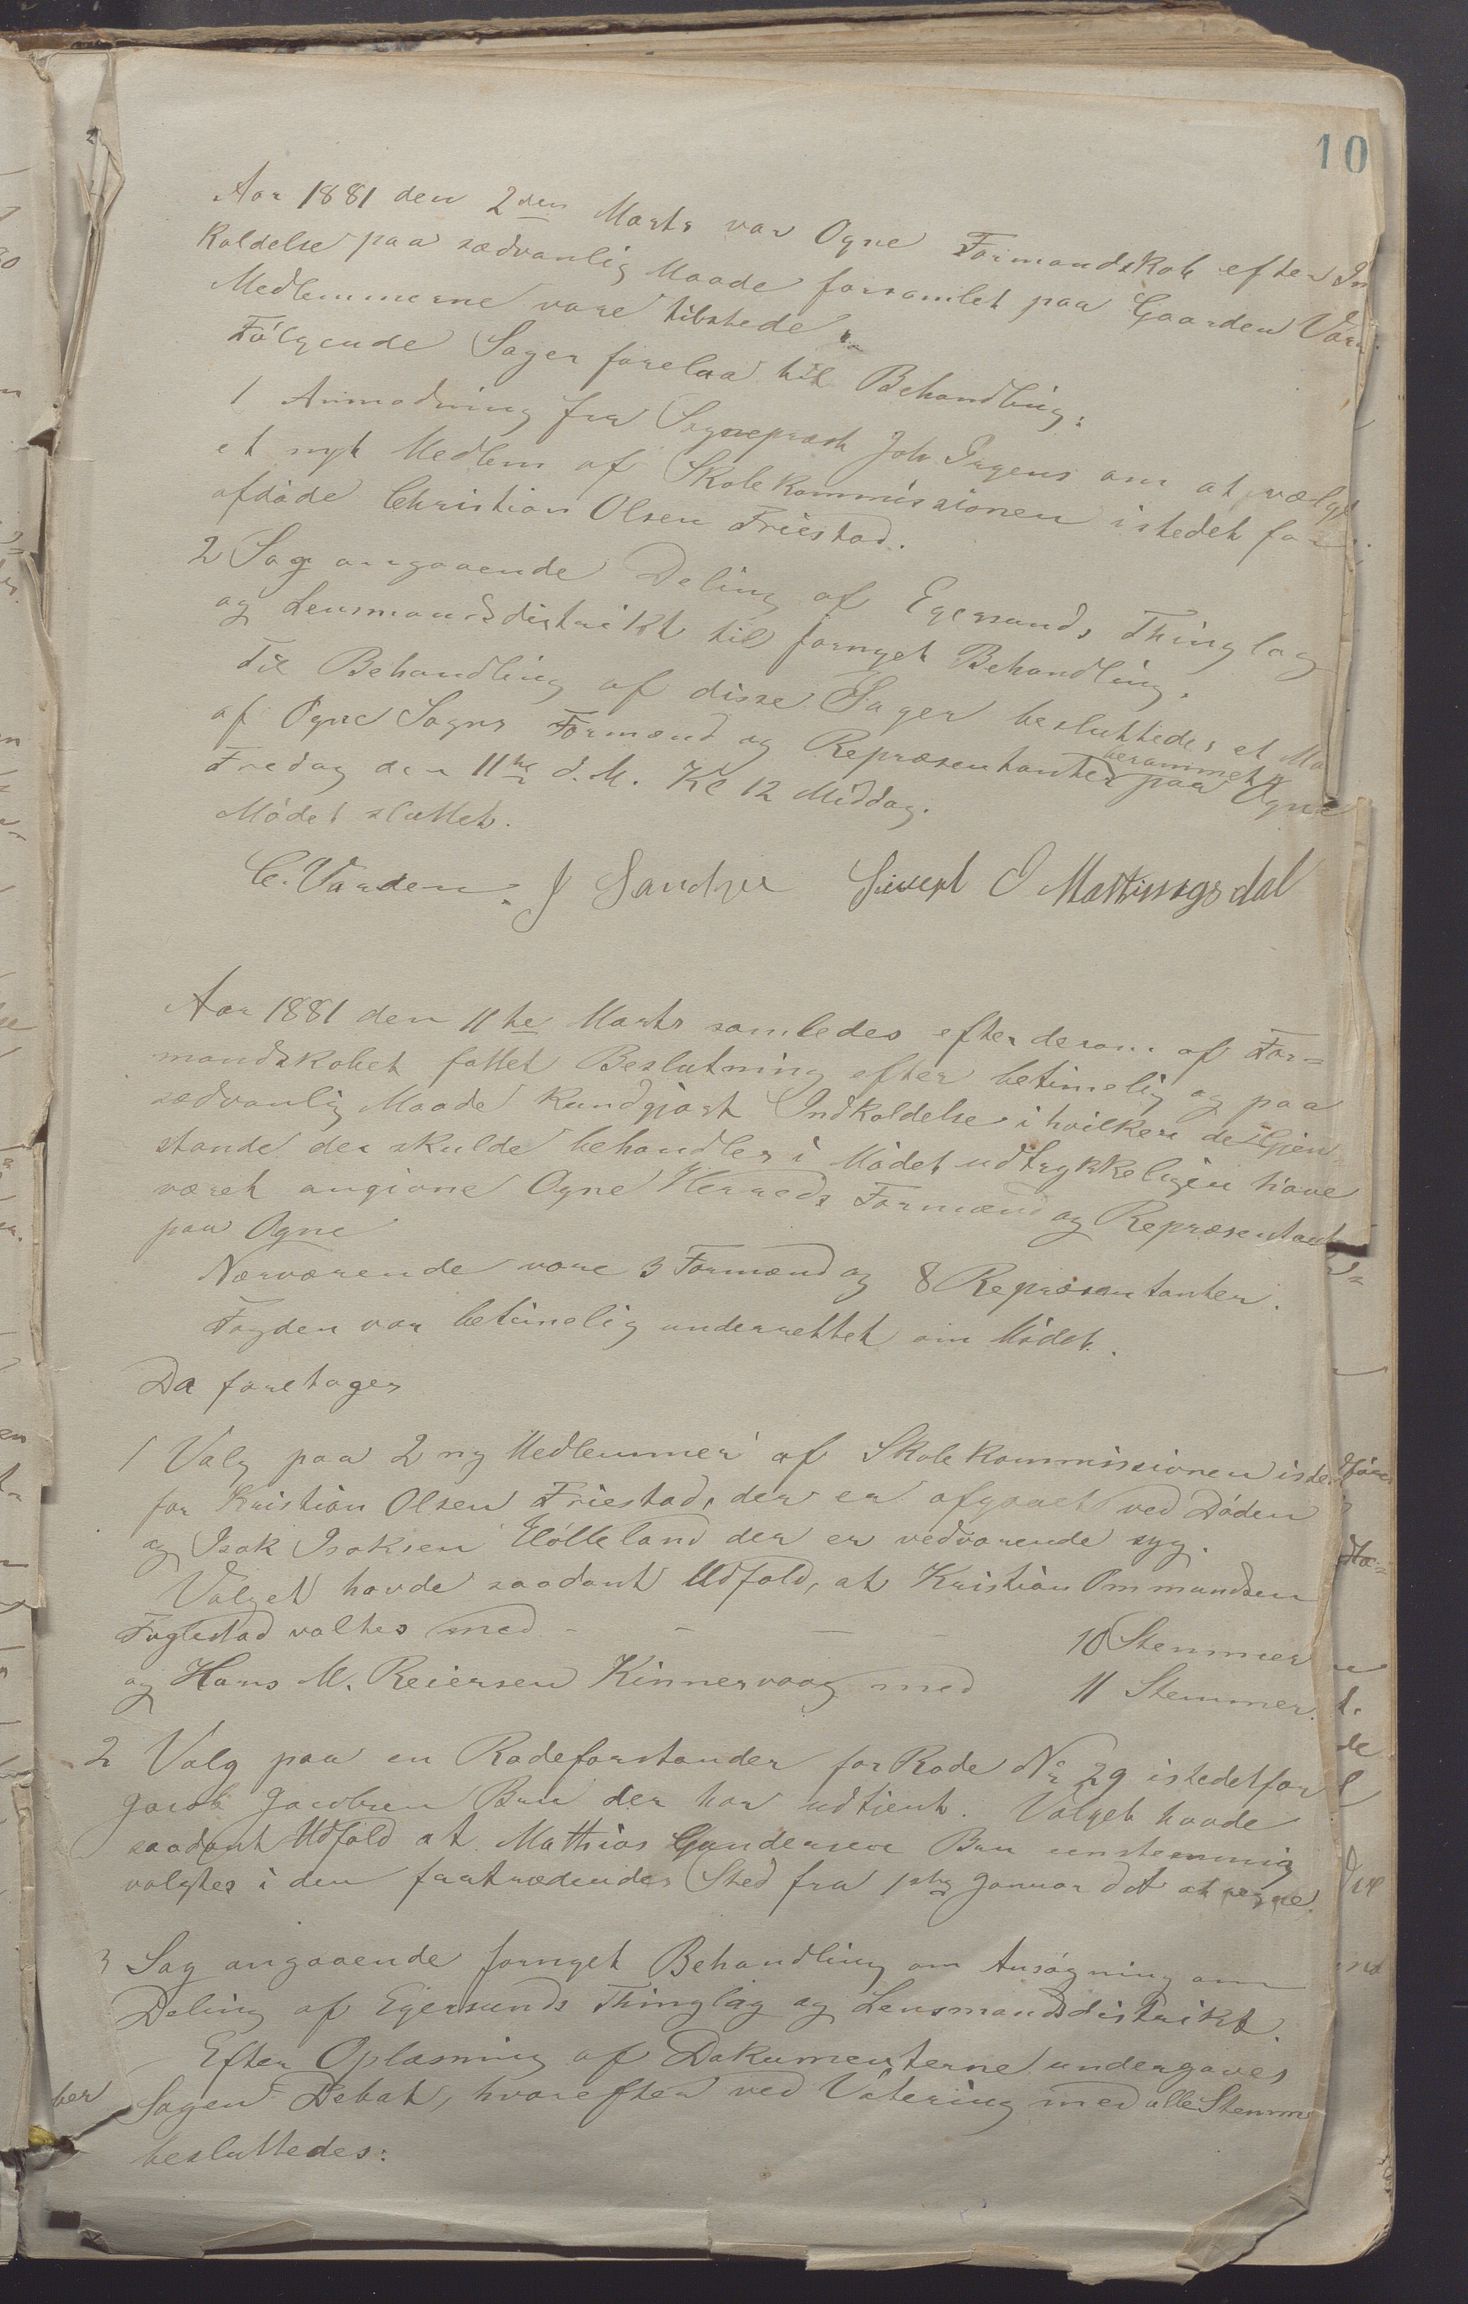 10
Aar 1881 den 2den Marts var Ogne Formandskab efter In
kaldelse paa sædvanlig Maade forsamlet paa Gaarden Vár
Medlemmerne vare tilstede.
Følgende Sager forelaa til Behandling:
1 Anmodning fra Sognepræst Joh Irgens om at vælge
et nyt Medlem af Skolekommissionen istedet for
afdøde Christian Olsen Friestad.
2 Sag angaaende Deling af Egersunds Thinglag
og Lensmandsdistrikt til fornyet Behandling.
Til Behandling af disse Sager besluttedes et Mø
af Ogne Sogns Formænd og Repræsentanter berammet paa Ogne
Fredag den 11te d.M. Kl 12 Middag.
Mødet sluttet.
C. Varden. J Sandve Sivert O Mattingsdal
Aar 1881 den 11te Marts samledes efter derom af For=
mandskabet fattet Beslutning efter betimelig og paa
sædvanlig Maade kundgjort Indkaldelse i hvilken de Gjen
stande der skulde behandles i Mødet udtrykkeligen have
været angivne Ogne Herreds Formænd og Repræsentant
paa Ogne
Nærværende vare 3 Formænd og 8 Repræsentanter.
Fogden var betimelig underrettet om Mødet.
Da foretages
1 Valg paa 2 ny Medlemmer af Skolekommissionen isted
for Kristian Olsen Friestad, der er afgaaet ved Døden
og Isak Isaksen Hølleland der er vedvarende syg.
Valget havde saadant Udfald, at Kristian Ommundsen
Fuglestad valtes med - - - - 10 Stemmer
og Hans M. Reiersen Kinnervaag med 11 Stemmer.
2 Valg paa en Rodeforstander for Rode No 29 istedetfor
Jacob Jacobsen Bru der har udtjent. Valget havde
saadant Udfald at Mathias Gundersen Bru enstemmig
valgtes i den fratrædendes Sted fra 1ste Januar d A at regne.
3 Sag angaaende fornyet Behandling om Ansøgning om
Deling af Egersunds Thinglag og Lensmandsdistrikt.
Efter Oplæsning af Dokumenterne undergaves
Sagen Debat, hvorefter ved Votering med alle Stemme
besluttedes: